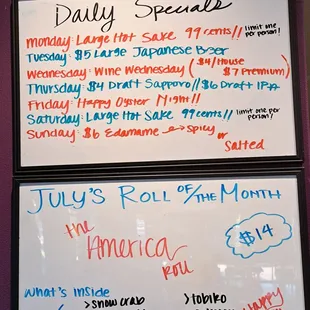 Daily Specials
Monday: Large Hot Sake 99 cents// limit one per person!
Tuesday: $5 Large Japanese Beer
Wednesday: Wine Wednesday ($4/House
$7 Premium)
Thursday: $4 Draft Sapporo//$6 Draft IPA
Friday: Happy Oyster Night//
Saturday: Large Hot Sake 99 cents// limit one per person!
Sunday: $6 Edamame → spicy
or
Salted
July's Roll of the Month
the
America
Roll
$14
What's inside
>snow crab
>tobiko
Happy